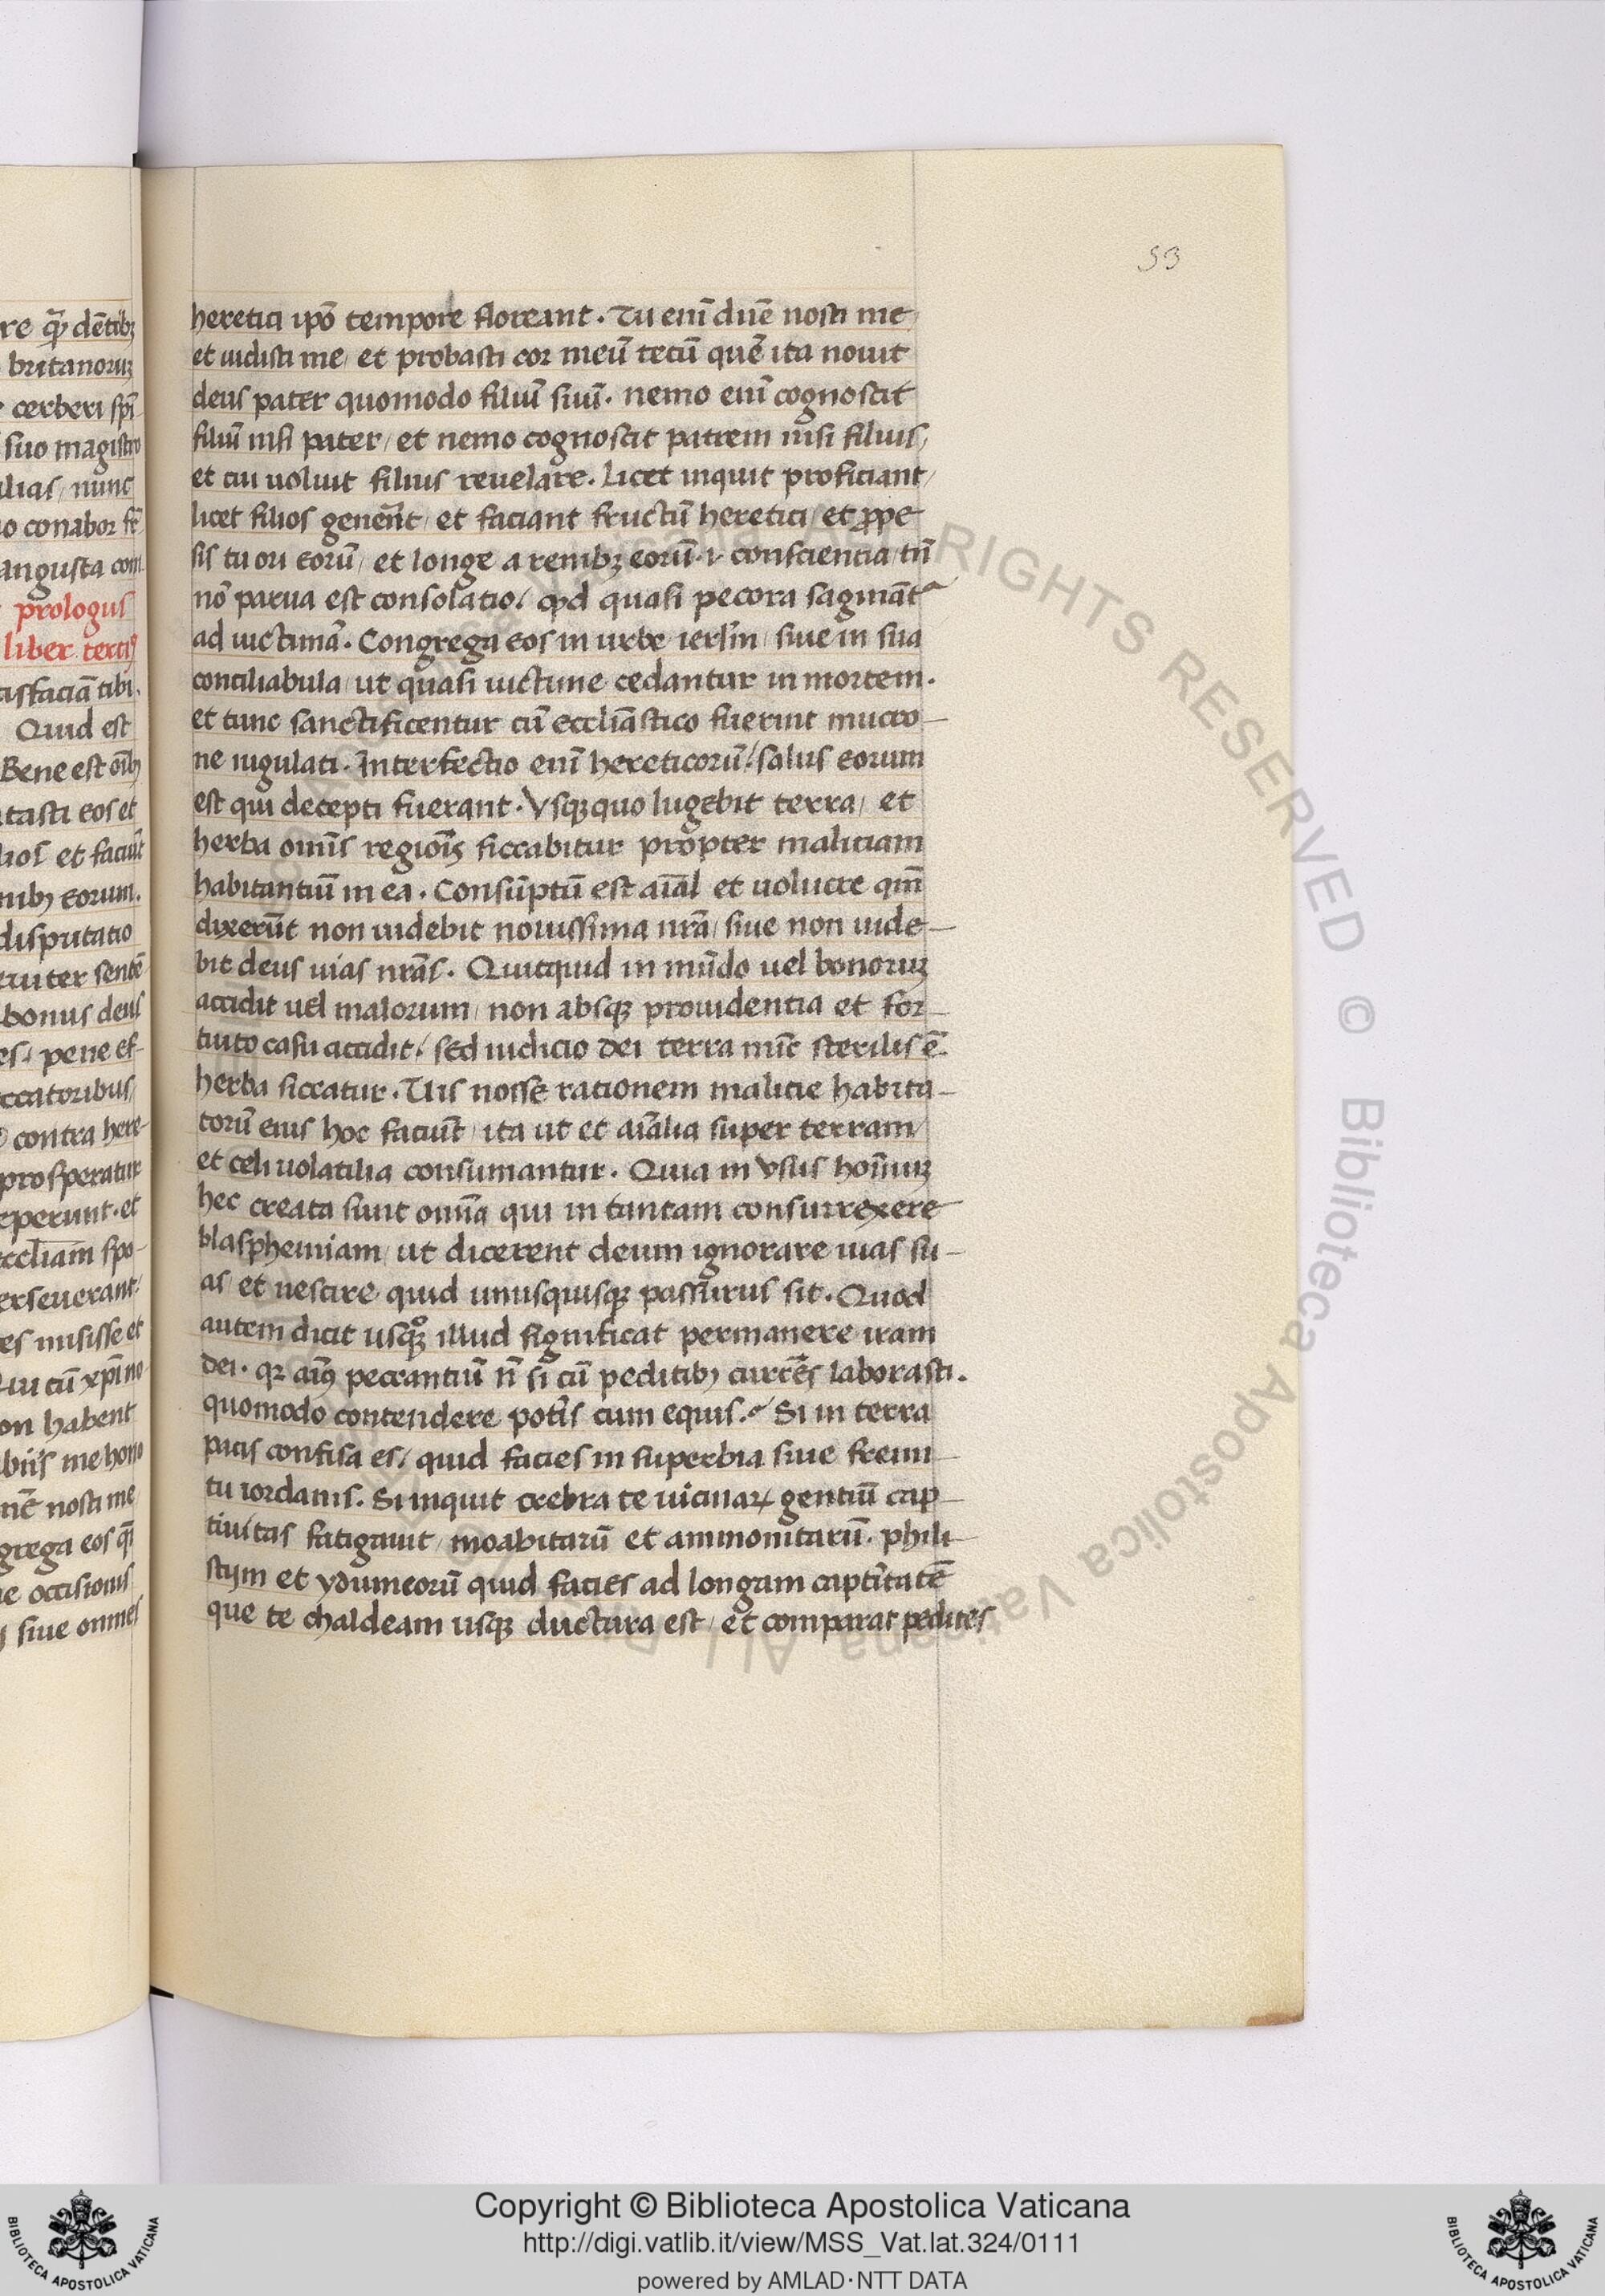 re qͣ̄ dētibꝫ
britanoruꝫ
cerberi spī
suo magistro
ilias / nunc
io conabor fr̄
angusta com
prologus
liber tertiꝰ
tisfaciā tibi.
Quid est
Bene est oībꝫ
tasti eos et
lios et faciūt
nibꝫ eorum.
disputatio
ruiter sentē
bonus deus
es. pene ef-
eccatoribus
contra here-
prosperatur
reperunt. et
eccl̄iam spo-
erseuerant.
es misisse et
Qui cū xp̄i no
on habent
biis me hono
nē nosti me
grega eos qͣ̄
ie occisionis
siue omnes
53
heretici ipō tempore floreant. Tu enī dn̄e nosti me
et uidisti me / et probasti cor meū tecū quē ita nouit
deus pater quomodo filiū suū. nemo enī cognoscit
filiū nisi pater / et nemo cognoscit patrem nisi filius /
et cui uoluit filius reuelare. Licet inquit proficiant /
licet filios genēnt / et faciant fructū heretici / et ꝓpe
sis tu ori eorū / et longe a renibꝫ eorū .i. conscientia / tn̄
nō parua est consolatio / qd quasi pecora saginātᷣ
ad uictimā. Congrega eos in urbe ierlīm / siue in sua
conciliabula / ut quasi uictime cedantur in mortem.
et tunc sanctificentur cū eccliāstico fuerint mucro-
ne iugulati. Interfectio enī hereticorū / salus eorum
est qui decepti fuerant. Vsqꝫquo lugebit terra / et
herba omīs regiōis siccabitur propter maliciam
habitantiū in ea. Consūptū est aīal et uolucre qm̄
dixerūt non uidebit nouissima nrā / siue non uide-
bit deus uias nrās. Quicquid in mūdo uel bonoruꝫ
accidit uel malorum / non absqꝫ prouidentia et for-
tuito casu accidit / sed iudicio dei terra nūc sterilis ē.
herba siccatur. Uis nosse rationem malicie habita-
torū eius hoc faciūt / ita ut et aīalia super terram /
et celi uolatilia consumantur. Quia in vsus hoīnuꝫ
hec creata sunt omīa qui in tantam consurrexere
blasphemiam / ut dicerent deum ignorare uias su-
as / et nescire quid unusquisqꝫ passurus sit. Quod
autem dicit usqꝫͦ illud significat permanere iram
dei. qꝛ aīꝰ peccantiū n̄ si cū peditibꝫ currēs laborasti.
quomodo contendere potīs cum equis. Si in terra
pacis confisa es / quid facies in superbia siue fremi-
tu iordanis. Si inquit crebra te uicinaꝝ gentiū cap-
tiuitas fatigauit / moabitarū et ammonitarū. phili-
stijm et ydumeorū quid facies ad longam captīitatē
que te chaldeam usqꝫ ductura est / et comparat pedites
RIGHTS RESERVED © Biblioteca Apostolica Vaticana ALL
Copyright © Biblioteca Apostolica Vaticana
http://digi.vatlib.it/view/MSS_Vat.lat.324/0111
powered by AMLAD·NTT DATA
BIBLIOTECA APOSTOLICA VATICANA
BIBLIOTECA APOSTOLICA VATICANA